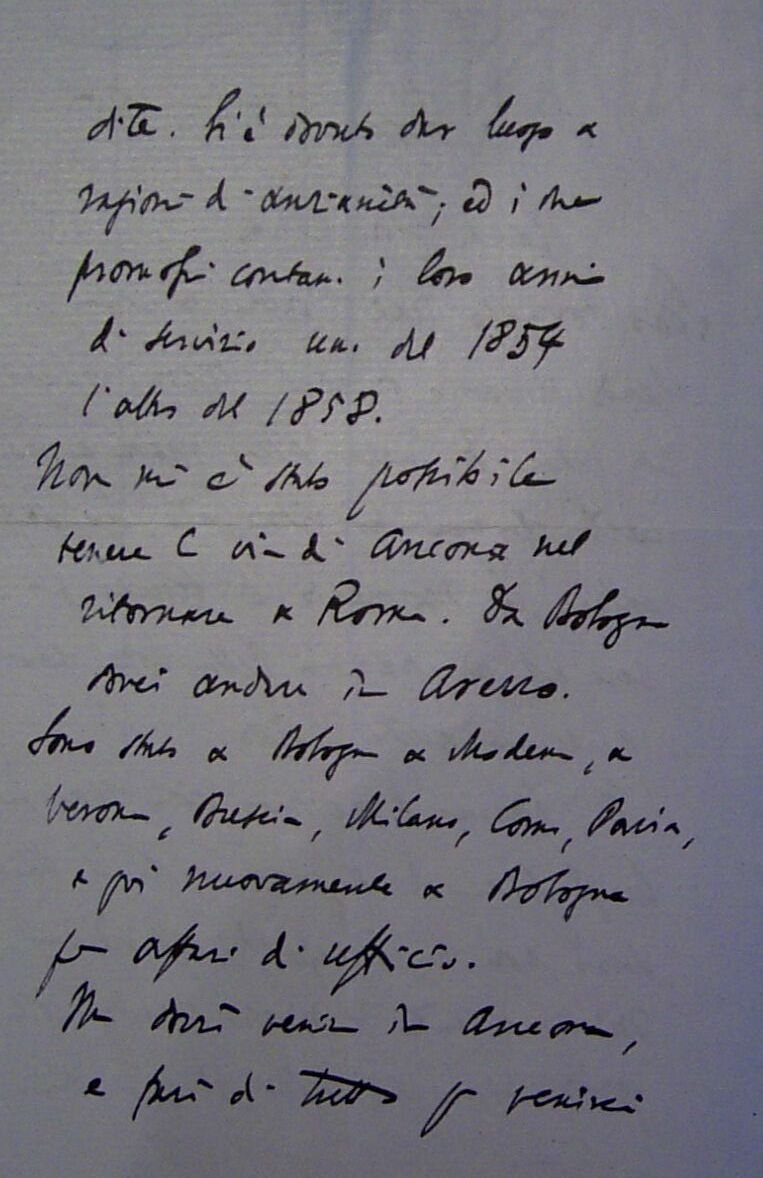 dite. Si è dovuto dar luogo a
ragioni di anzianità; ed i due
promossi contano i loro anni
di servizio uno dal 1854
l'altro dal 1858.
Non mi è stato possibile
tenere la via di Ancona nel
ritornare a Roma. Da Bologna
dovei andare in Arezzo.
Sono stato a Bologna a Modena, a
Verona, Brescia, Milano, Como, Pavia,
e poi nuovamente a Bologna
per affari di ufficio.
Ma dovrò venire in Ancona,
e farò di tutto per venirci